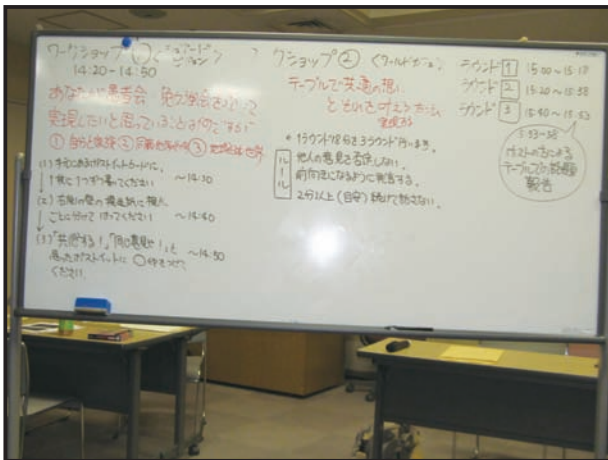 ワークショップ① <シェアードビジョン>
14:20-14:50
あなたが患者会 勉強会をとおして
実現したいと思っていることはなんですか
① 自分と家族 ② ③ 地域と世界
(1) 手元にあるポストイットカードに、
1枚に1つずつ書いてください ～14:30
(2) 右側の壁の模造紙に種類
ごとに分けて はってください ～14:40
(3) "共感する!"、"同じ意見や!"と ～14:50
思ったポストイットに ○印をつけて
ください。
クショップ② <ワールドカフェ>
テーブルで共通の想い
ともいきを叶える方法
* 1ラウンド18分を3ラウンド行います。
ルール
他人の意見を否定しない。
前向きになるように発言する。
2分以上(目安)続けて話さない。
ラウンド 1 15:00～15:18
ラウンド 2 15:20～15:38
ラウンド 3 15:40～15:53
ホストの方による
テーブルでの話題
報告